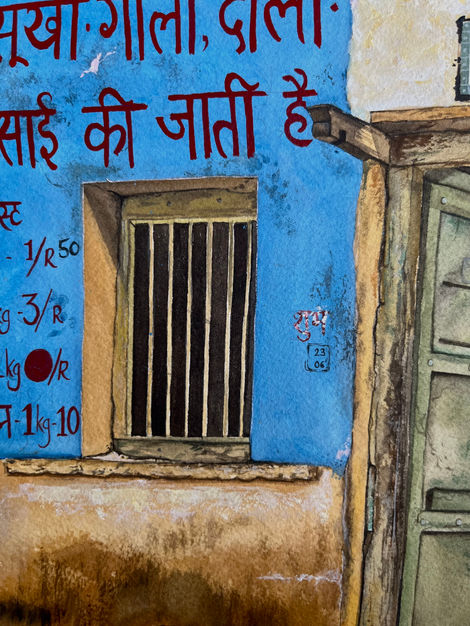 साई की जाती है
स्ट
- 1/R 50
kg - 3/R
शुभ
23
06
kg /R
-1kg-10